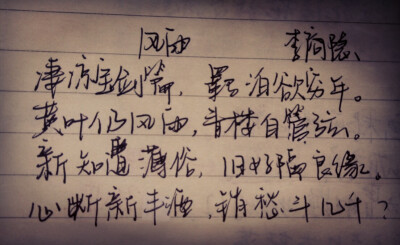 风雨 李商隐
凄凉宝剑篇，羁泊欲穷年。
黄叶仍风雨，青楼自管弦。
新知遭薄俗，旧好隔良缘。
心断新丰酒，销愁斗几千？